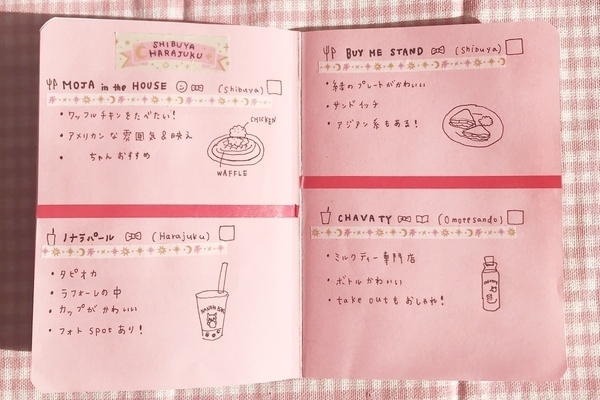 SHIBUYA
HARAJUKU
MOJA in the HOUSE (Shibuya)
・ワッフルチキンをたべたい!
・アメリカンな雰囲気&映え
・ ちゃんおすすめ
CHICKEN
WAFFLE
ノナラパール (Harajuku)
・タピオカ
・ラフォーレの中
・カップがかわいい
・フォトspotあり!
BUY ME STAND (Shibuya)
・緑のプレートがかわいい
・サンドイッチ
・アジアン系もある!
CHAVATY (Omotesando)
・ミルクティー専門店
・ボトルかわいい
・take outもおしゃれ!